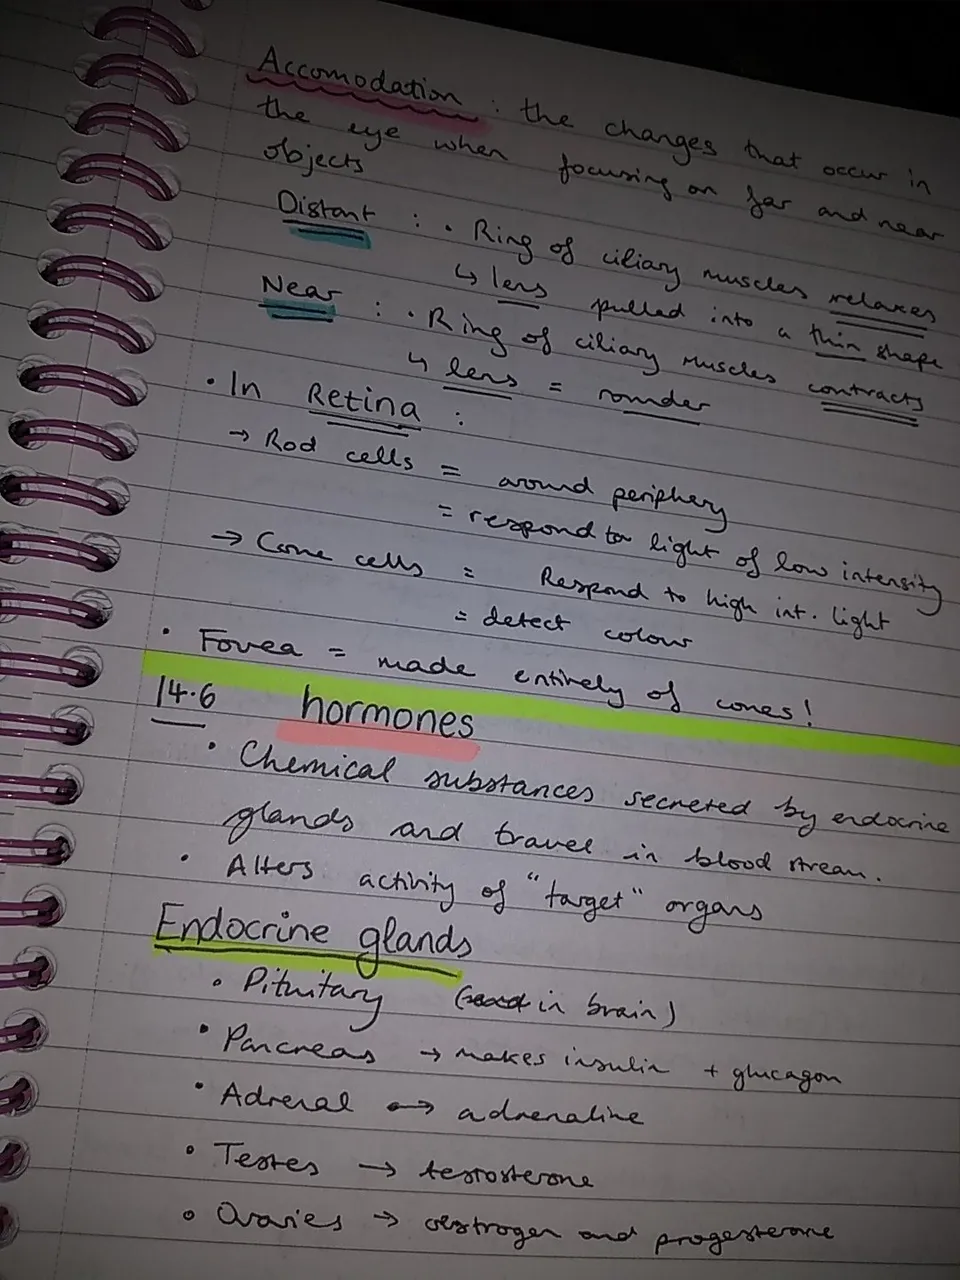 Accomodation : the changes that occur in
the eye when focusing on far and near
objects
Distant : • Ring of ciliary muscles relaxes
↳ lens pulled into a thin shape
Near : • Ring of ciliary muscles contracts
↳ lens = rounder
• In Retina :
→ Rod cells = around periphery
= respond to light of low intensity
→ Cone cells = Respond to high int. light
= detect colour
• Fovea = made entirely of cones!
14.6 hormones
• Chemical substances secreted by endocrine
glands and travel in blood stream.
• Alters activity of "target" organs
Endocrine glands
• Pituitary (in brain)
• Pancreas → makes insulin + glucagon
• Adrenal → adrenaline
• Testes → testosterone
• Ovaries → oestrogen and progesterone